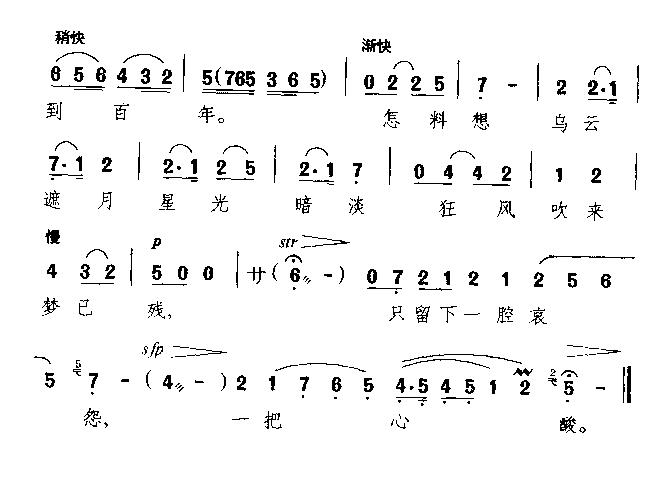 稍快 渐快
6 5 6 4 3 2 | 5 (765 3 6 5) | 0 2 2 5 | 7 - | 2 2·1 |
到 百 年。 怎 料 想 乌 云
7·1 2 | 2·1 2 5 | 2·1 7 | 0 4 4 2 | 1 2 |
遮 月 星 光 暗 淡 狂 风 吹 来
慢 p str
4 3 2 | 5 0 0 | 廾 ( 6 - ) 0 7 2 1 2 1 2 5 6
梦 已 残, 只 留 下 一 腔 哀
sfp
5 7 - ( 4 - ) 2 1 7 6 5 4·5 4 5 1 2 5 -
怨, 一 把 心 酸。